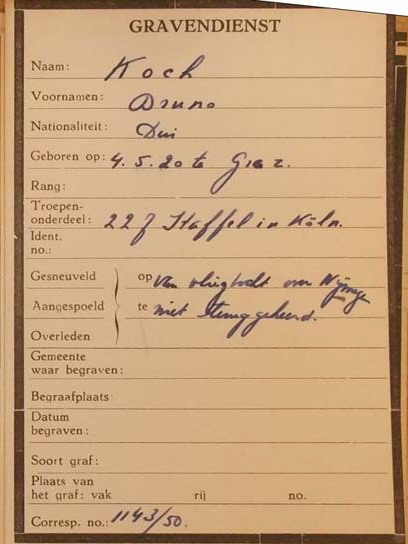 GRAVENDIENST
Naam: Koch
Voornamen: Bruno
Nationaliteit: Dui
Geboren op: 4.5.20 te Graz.
Rang:
Troepen-
onderdeel: 22 J Staffel in Köln.
Ident.
no.:
Gesneuveld op van vliegtocht over Nijmegen
Aangespoeld te niet teruggekeerd.
Overleden
Gemeente
waar begraven:
Begraafplaats
Datum
begraven:
Soort graf:
Plaats van
het graf: vak rij no.
Corresp. no.: 1143/50.